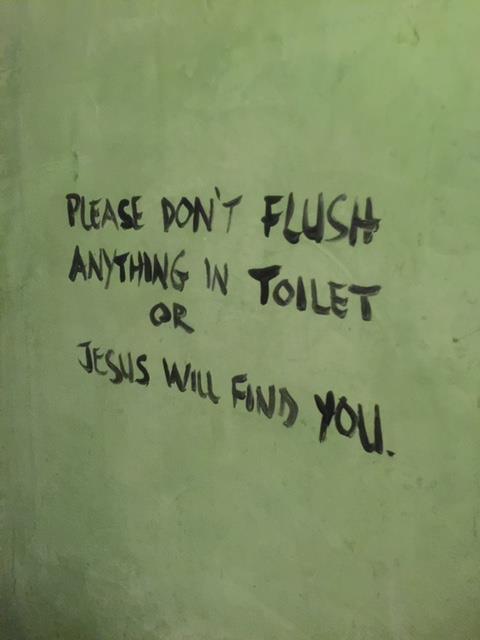 PLEASE DON'T FLUSH
ANYTHING IN TOILET
OR
JESUS WILL FIND YOU.